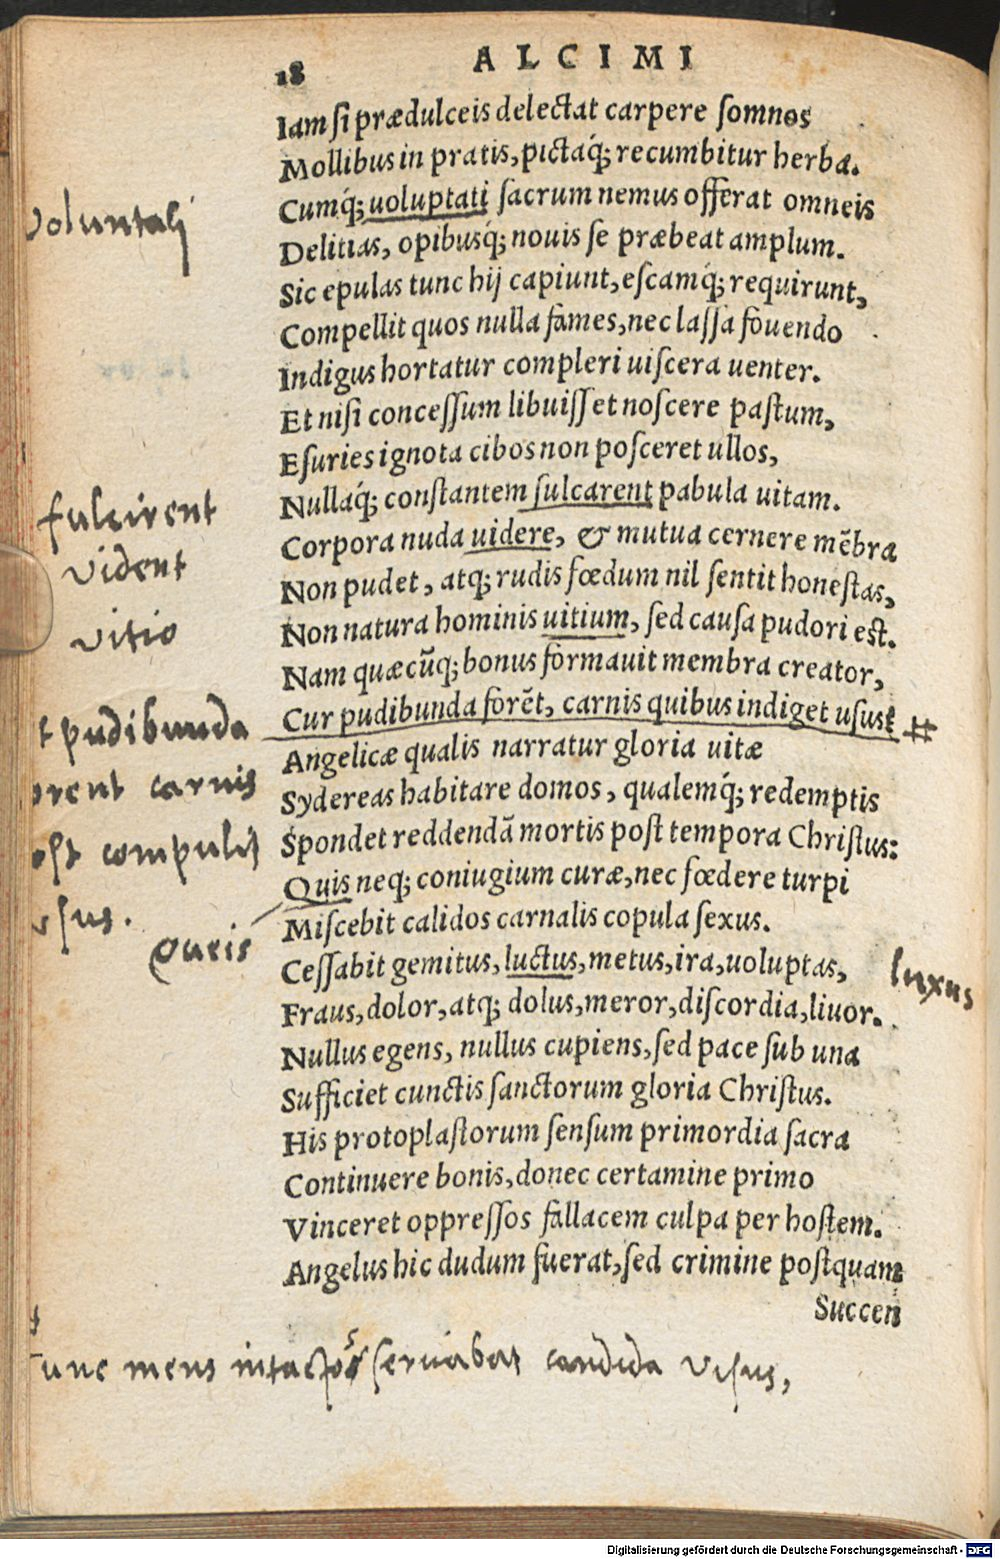 18 ALCIMI
Iam ſi prædulceis delectat carpere ſomnos
Mollibus in pratis, pictaq́; recumbitur herba.
Cumq́; uoluptati ſacrum nemus offerat omneis
Voluntati
Delitias, opibusq́; nouis ſe præbeat amplum.
Sic epulas tunc hij capiunt, eſcamq́; requirunt,
Compellit quos nulla fames, nec laſſa fouendo
Indigus hortatur compleri uiſcera uenter.
Et niſi conceſſum libuiſſet noſcere paſtum,
Eſuries ignota cibos non poſceret ullos,
Nullaq́; conſtantem ſulcarent pabula uitam.
fulcirent
Corpora nuda uidere, & mutua cernere mēbra
vident
Non pudet, atq; rudis fœdum nil ſentit honeſtas,
Non natura hominis uitium, ſed cauſa pudori eſt.
vitio
Nam quæcūq; bonus formauit membra creator,
Cur pudibunda forēt, carnis quibus indiget uſus?
#
t pudibunda
orent carnis
oſt compulit
uſus.
Angelicæ qualis narratur gloria uitæ
Sydereas habitare domos, qualemq́; redemptis
Spondet reddendā mortis poſt tempora Chriſtus:
Quis neq; coniugium curæ, nec fœdere turpi
Queis
Miſcebit calidos carnalis copula ſexus.
Ceſſabit gemitus, luctus, metus, ira, uoluptas,
luxus
Fraus, dolor, atq; dolus, meror, diſcordia, liuor.
Nullus egens, nullus cupiens, ſed pace ſub una
Sufficiet cunctis ſanctorum gloria Chriſtus.
His protoplaſtorum ſenſum primordia ſacra
Continuere bonis, donec certamine primo
Vinceret oppreſſos fallacem culpa per hoſtem.
Angelus hic dudum fuerat, ſed crimine poſtquam
Succen
#
Tunc mens intactos ſeruabat candida viſus,
Digitalisierung gefördert durch die Deutsche Forschungsgemeinschaft - DFG